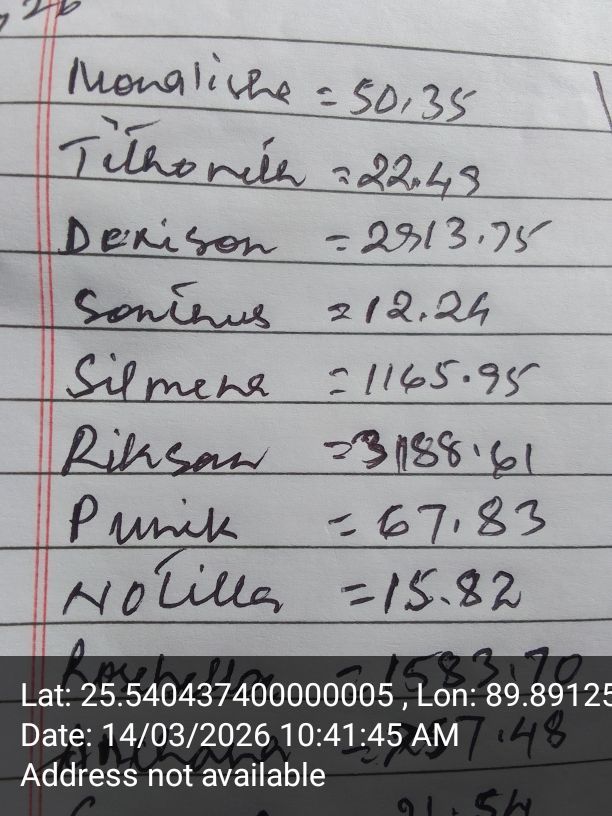 26
Monalisha = 50.35
Tithonith = 22.49
Denison = 2913.75
Sontinus = 12.24
Silmena = 1165.95
Riksan = 3188.61
Punik = 67.83
Notilla = 15.82
= 1583.70
Lat: 25.540437400000005 , Lon: 89.89125
Date: 14/03/2026 10:41:45 AM
257.48
Address not available
21.54